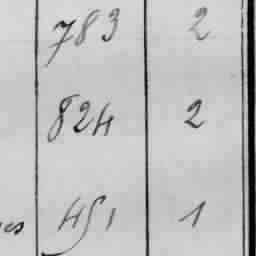 783 2
824 2
451 1